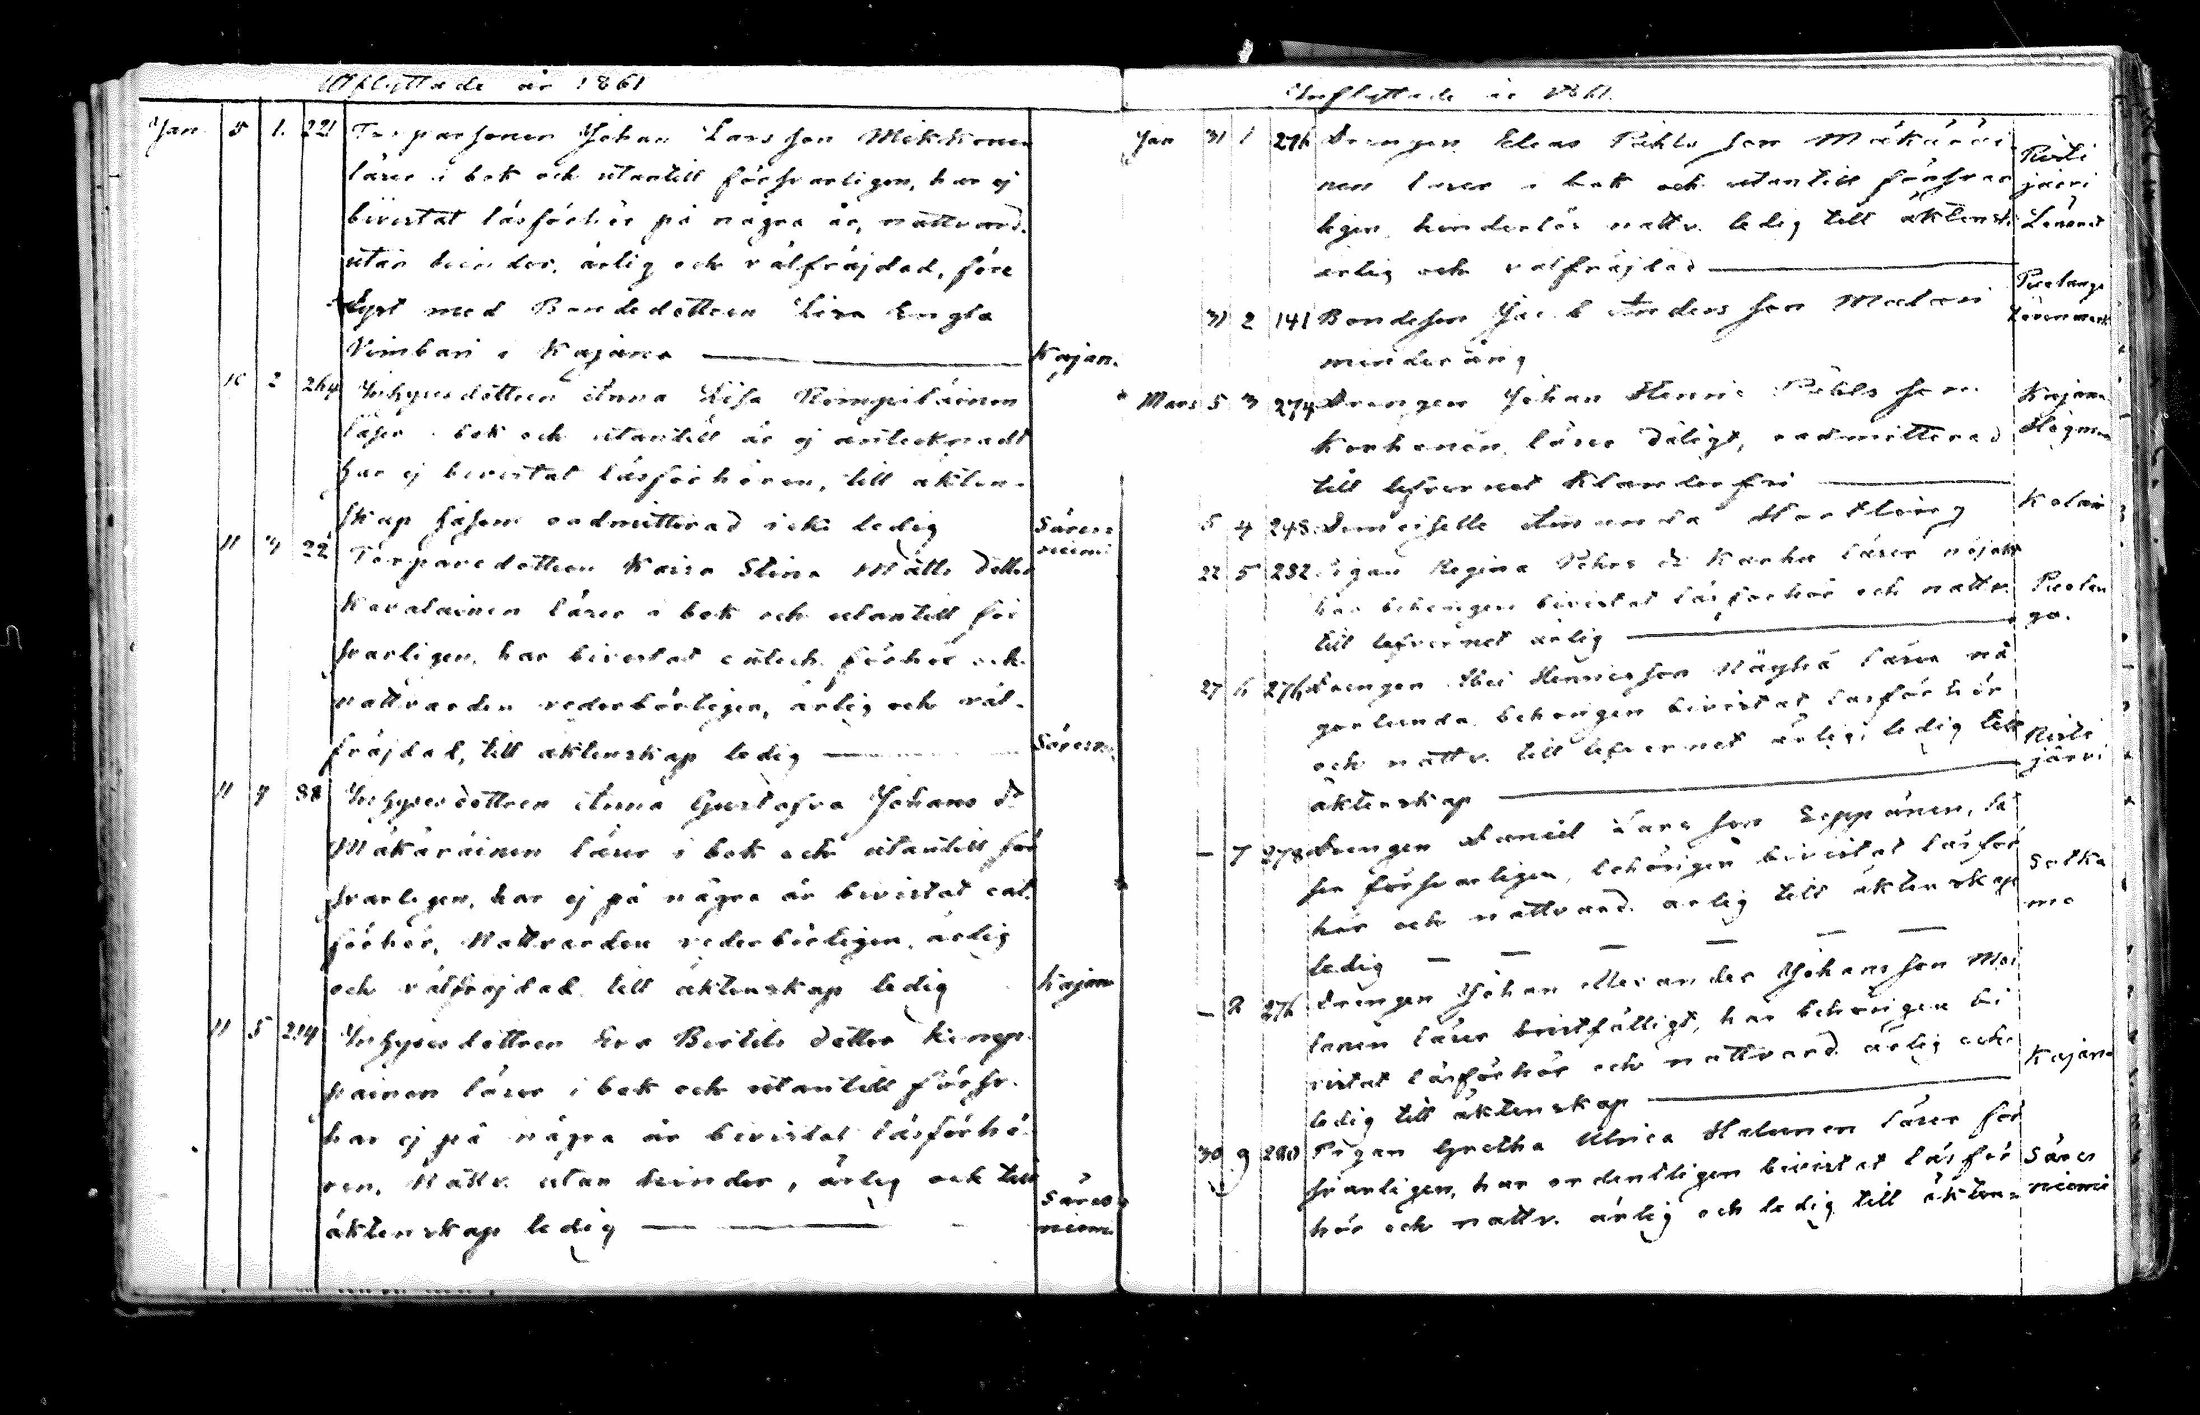 Utflyttade år 1861
Jan. 5 1. 221 Torparsonen Johan Larsson Mikkonen
läser i bok och utantill försvarligen, har ej
bivistat läsförhör på några år, nattvard.
utan hinder, ärlig och välfräjdad, före
lyst med Bondedottren Lisa Engla
Vimbari i Kajana Kajan.
2 264 Inhysesdottren Anna Lisa Rimpiläinen
läser i bok och utantill är ej antecknadt
har ej bivistat läsförhören, till äkten-
skap såsom oadmitterad icke ledig Säres
niemi
11 3 22 Torparedottren Kaisa Stina Matts dotter
Kovalainen läser i bok och utantill för
svarligen, har bivistat catech. förhör och
nattvarden vederbörligen, ärlig och väl-
fräjdad, till äktenskap ledig Säresn.
11 4 88 Inhysesdottren Anna Gustafva Johans d:r
Mäkäräinen läser i bok och utantill för
svarligen, har ej på några år bivistat cat.
förhör, Nattvarden vederbörligen, ärlig
och välfräjdad till äktenskap ledig Kajan
11 5 214 Inhysesdottren Eva Bertils dotter Kemp
painen läser i bok och utantill försv.
har ej på några år bivistat läsförhö-
ren, Nattv. utan hinder, ärlig och till
äktenskap ledig Säres
niemi
Inflyttade år 1861.
Jan 31 1 276 Drengen Elias Påhls son Mäkäräi
nen läser i bok och utantill försvar
ligen, hinderlös nattv. ledig till äktensk.
ärlig och välfräjdad Risti
järvi
31 2 141 Bondeson Jacob Anders son Malari
minderårig Puolango
Mars 5 3 274 Drengen Johan Henric Påhls son
Korhonen, läser dåligt, oadmitterad
till lefvernet klanderfri Kajana
5 4 248 Demoiselle Amanda Hartling
22 5 232 Pigan Regina Pehrs d:r Karhu läser nöjakt
har behörigen bivistat läsförhör och nattv.
till lefvernet ärlig Puolan
go.
27 6 276 Drengen Henricsson Näyhä läser nå
gorlunda, behörigen bivistat läsförhör
och nattv. till lefvernet ärlig, ledig till
äktenskap Risti
järvi
— 7 278 Drengen Daniel Lars son Seppänen, lä
ser försvarligen, behörigen bivistat läsför
hör och nattvard. ärlig till äktenskap
ledig Sotka
mo
— 8 276 Drengen Johan Alexander Johans son Moi
lanen läser bristfälligt, har behörigen bi
vistat läsförhör och nattvard. ärlig och
ledig till äktenskap Kajana
30 9 280 Pigan Gretha Ulrica Halonen läser för
svarligen, har ordentligen bivistat läsför
hör och nattv. ärlig och ledig till äkten- Säres
niemi